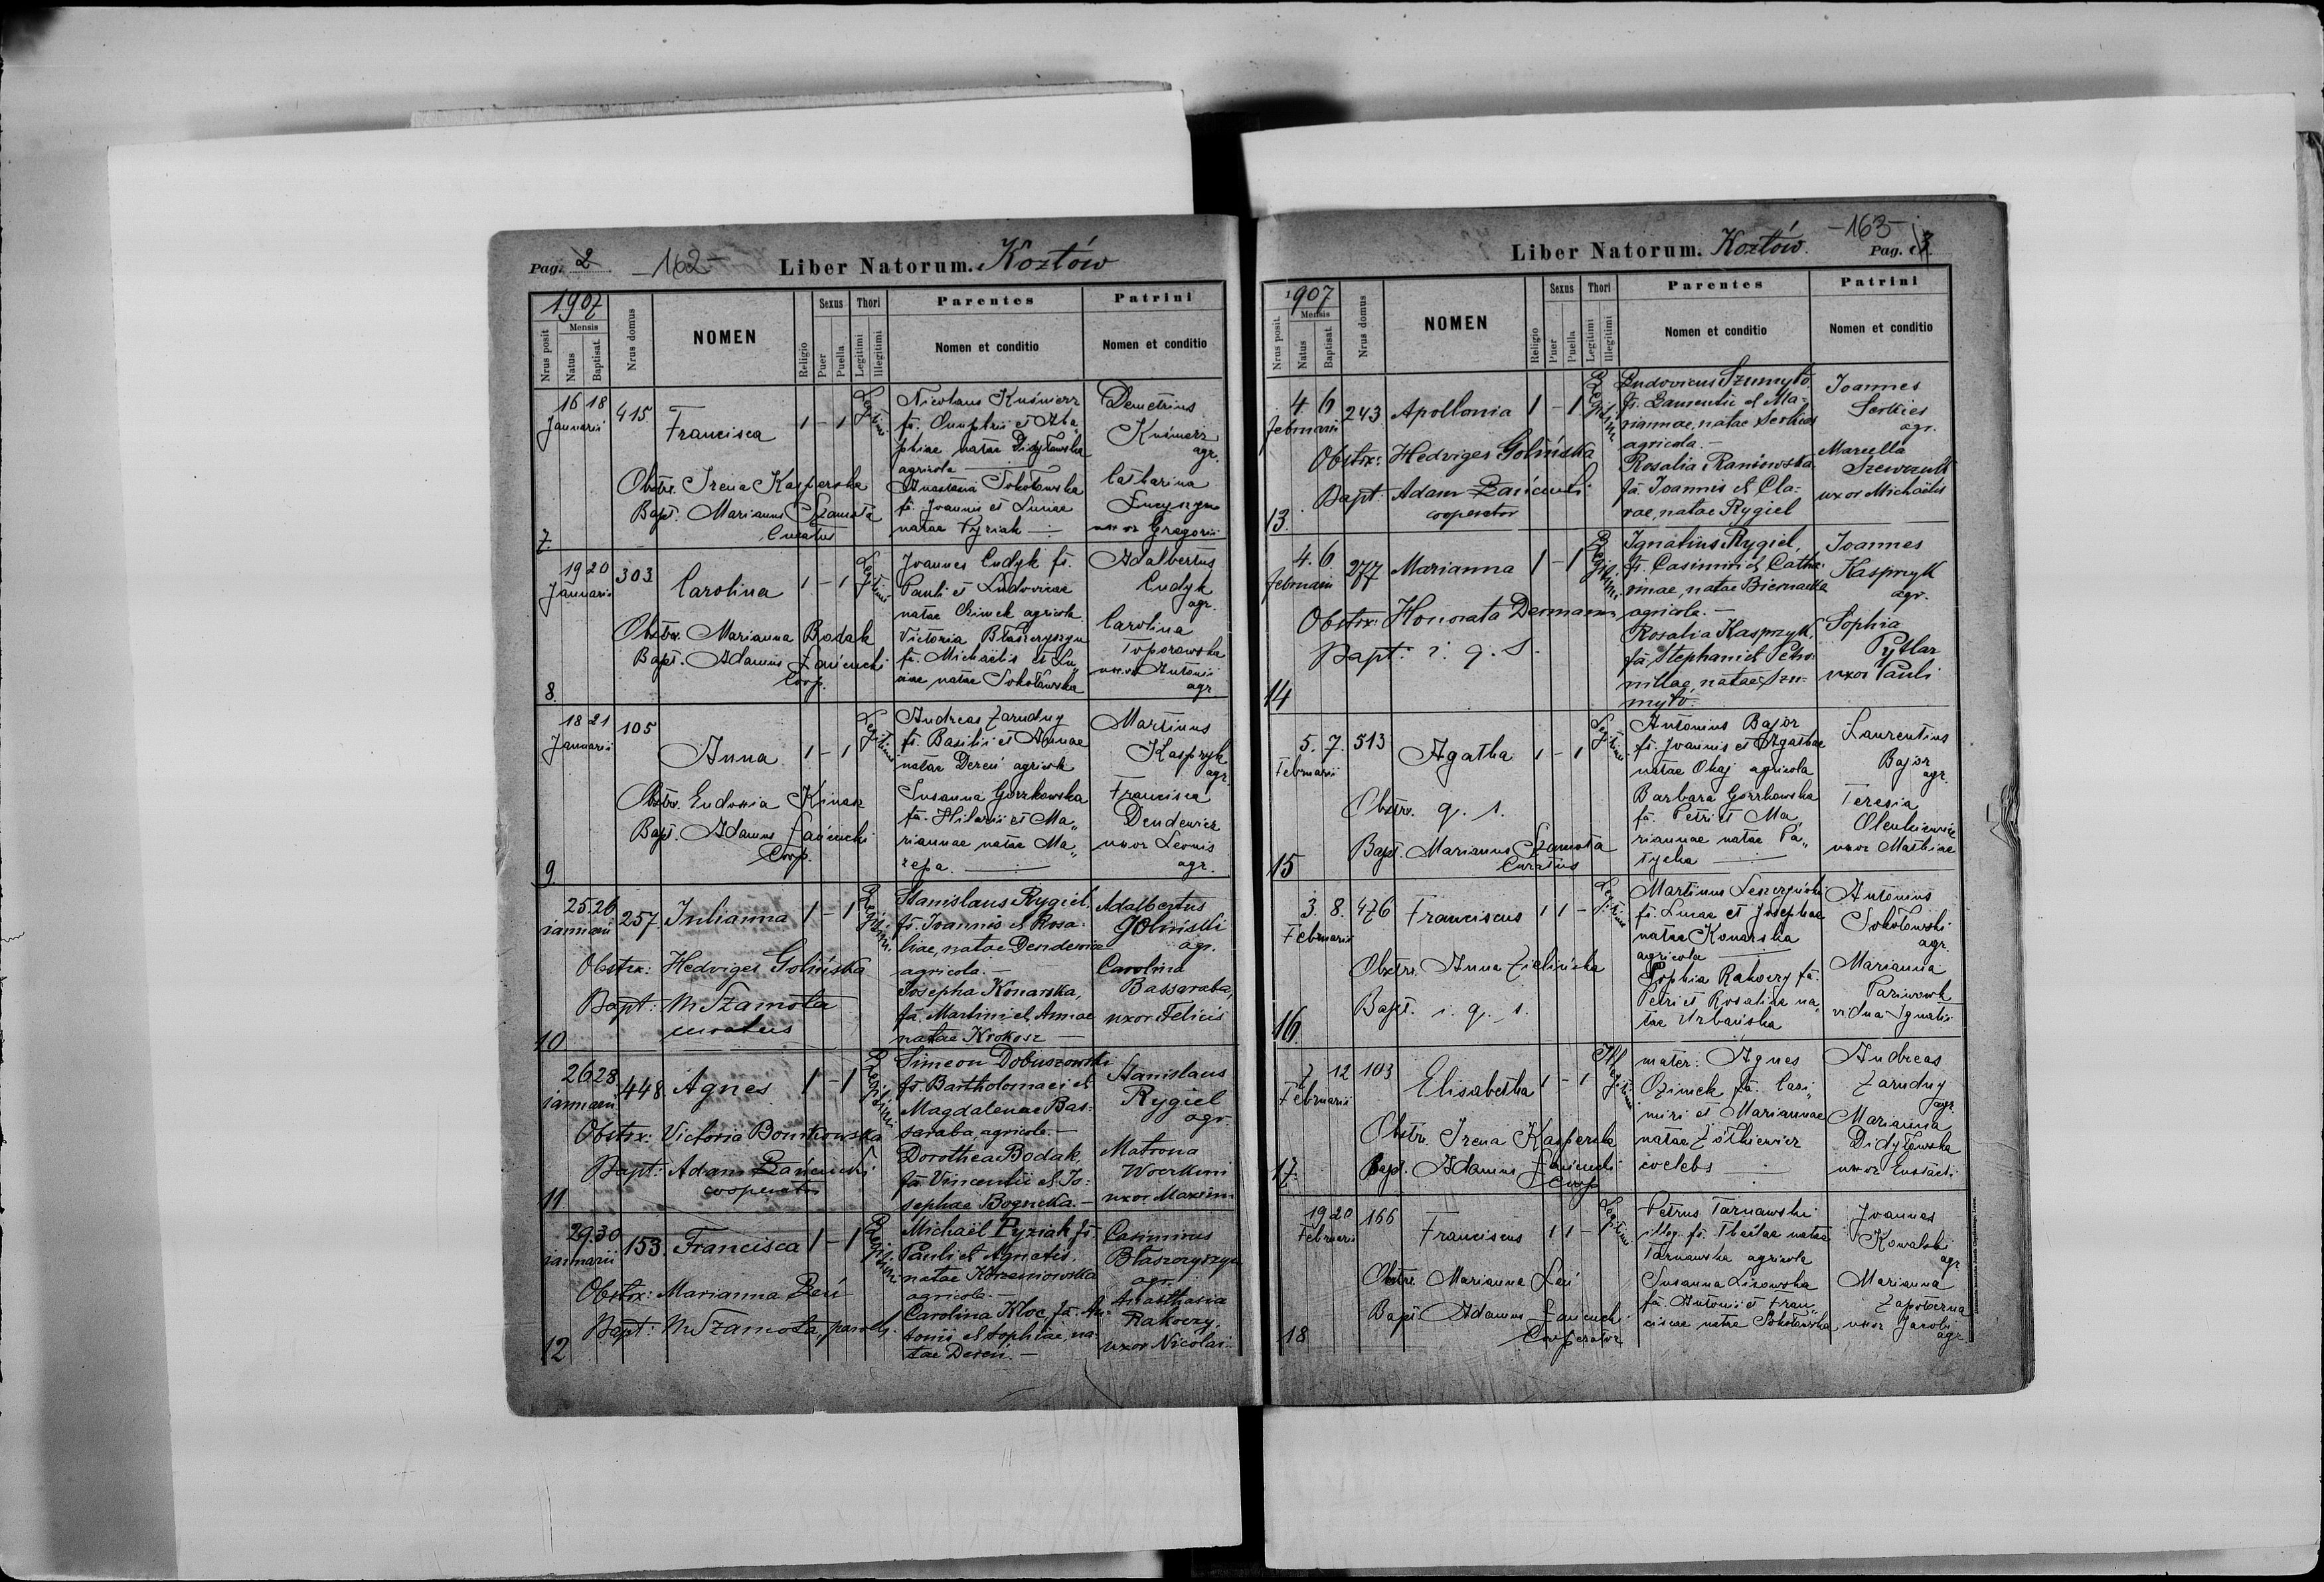 Pag. 2 -162- Liber Natorum. Kozłów
1907
Nrus posit. Mensis Natus Baptisat. Nrus domus NOMEN Religio Sexus Puer Puella Thori Legitimi Illegitimi Parentes Nomen et conditio Patrini Nomen et conditio
16 18 Januarii 415 Francisca 1 - 1 Legitimi
Nicolaus Kuśnierz
fs. Onuphrii et Aga
phiae natae Didyławska
agricola
Anastasia Sokołowska
fa. Joannis et Luciae
natae Pyziak
Demetrius
Kuśnierz
agr.
Catharina
uxor Gregorii
Obstrx. Irena Kasperska
Bapt. Marianus Szamota
Curatus
7.
19 20 Januarii 303 Carolina 1 - 1 Legitimi
Joannes Cudyk fs.
Pauli et Ludovicae
natae Ozimek agricola
Victoria Błaszczyszyn
fa. Michaëlis et Lu„
ciae natae Sokołowska
Adalbertus
Cudyk
agr.
Carolina
Toporowska
uxor Antonii
agr.
Obstrx. Marianna Bodak
Bapt. Adamus Łańcucki
Coop.
8.
18 21 Januarii 105 Anna 1 - 1 Legitimi
Andreas Zarudny
fs. Basilii et Annae
natae Dereń agricola
Susanna Gorzkowska
fa. Hilarii et Ma„
riannae natae Ma„
zepa.
Martinus
Kasprzyk
agr.
Francisca
Dendewicz
uxor Leonis
agr.
Obstrx. Eudoxia Kinasz
Bapt. Adamus Łańcucki
Coop.
9.
25 26 ianuarii 257. Julianna 1 - 1 Legitimi
Stanislaus Rygiel,
fs. Joannis et Rosa-
liae, natae Dendewicz
agricola.-
Josepha Konarska,
fa. Martini et Annae
natae Krokosz
Adalbertus
Goliński
agr.
Carolina
Bassaraba,
uxor Felicis
Obstrx: Hedviges Golińska
Bapt: M Szamota
curatus
10
26 28 ianuarii 448. Agnes 1 - 1 Legitimi
Simeon Dobuszowski
fs. Bartholomaei et
Magdalenae Bas-
saraba, agricola.-
Dorothea Bodak
fa. Vincentii et Jo-
sephae Bognicka.-
Stanislaus
Rygiel
agr.
Matrona
uxor Maximi
Obstrx: Victoria Bonikowska
Bapt: Adam Łańcucki
cooperator
11.
29. 30 ianuarii 153. Francisca 1 - 1 Legitimi
Michaël Pyziak fs.
Pauli et Agnetis
natae Korzeniowska
agricola.-
Carolina Kloc, fa. An-
tonii et Sophiae, na-
tae Dereń.-
Casimirus
Błaszczyszyn
agr.
Anasthasia
Rakoczy,
uxor Nicolai
Obstrx: Marianna Leń
Bapt: M Szamota, paroch.
12
Liber Natorum. Kozłów. -163- Pag. 3.
1907
Nrus posit. Mensis Natus Baptisat. Nrus domus NOMEN Religio Sexus Puer Puella Thori Legitimi Illegitimi Parentes Nomen et conditio Patrini Nomen et conditio
4. 6 februarii 243 Apollonia 1 - 1 Legitimi
Ludovicus Szumyło,
fs. Laurentii et Ma-
riannae, natae Serkies
agricola.-
Rosalia Raniowska
fa. Joannis et Cla-
rae, natae Rygiel
Joannes
Serkies
agr.
Marcella
Szewczuk
uxor Michaëlis
Obstrx: Hedviges Golińska
Bapt: Adam Łańcucki
cooperator
13.
4. 6. februarii 277 Marianna 1 - 1 Legitimi
Ignatius Rygiel,
fs. Casimiri et Catha-
rinae, natae Biernacka
agricola.-
Rosalia Kasprzyk,
fa. Stephani et Petro-
nillae, natae Szu-
myło.-
Joannes
Kasprzyk
agr.
Sophia
Pytlar
uxor Pauli
Obstrx: Honorata Dermann,
Bapt: i. q. s.
14
5. 7. Februarii 513 Agatha 1 - 1 Legitimi
Antonius Bajor
fs. Joannis et Agathae
natae Okaj agricola
Barbara Gorzkowska
fa. Petri et Ma„
riannae natae Pa„
tycka
Laurentius
Bajor
agr.
Teresia
Olenkiewicz
uxor Mathiae
Obstrx. q. s.
Bapt. Marianus Szamota
Curatus
15
3. 8. Februarii 476 Franciscus 1 1 - Legitimi
Martinus
fs. Lucae et Josephae
natae Konarska
agricola
Sophia Rakoczy fa.
Petri et Rosaliae na„
tae Urbańska
Antonius
Sokołowski
agr.
Marianna
vidua Ignatii
Obstrx. Anna Zielińska
Bapt. i. q. s.
16.
7 12 Februarii 103 Elisabetha 1 - 1 Illegitimi
mater: Agnes
Ozimek fa. Casi„
miri et Mariannae
natae Żółkiewicz
coelebs
Andreas
Zarudny
agr.
Marianna
Didyławska
uxor Eustachi
Obstrx. Irena Kasperska
Bapt. Adamus Łańcucki
Coop
17.
19 20 Februarii 166 Franciscus 1 1 - Legitimi
Petrus Tarnawski
illeg. fs. Theclae natae
Tarnawska agricola
Susanna Lisowska
fa. Antonii et Fran„
ciscae natae Sokołowska
Joannes
Kowalski
agr
Marianna
Zapotoczna
uxor Jacobi
agr
Obstrx Marianna Leń
Bapt Adamus Łańcucki
Cooperator
18